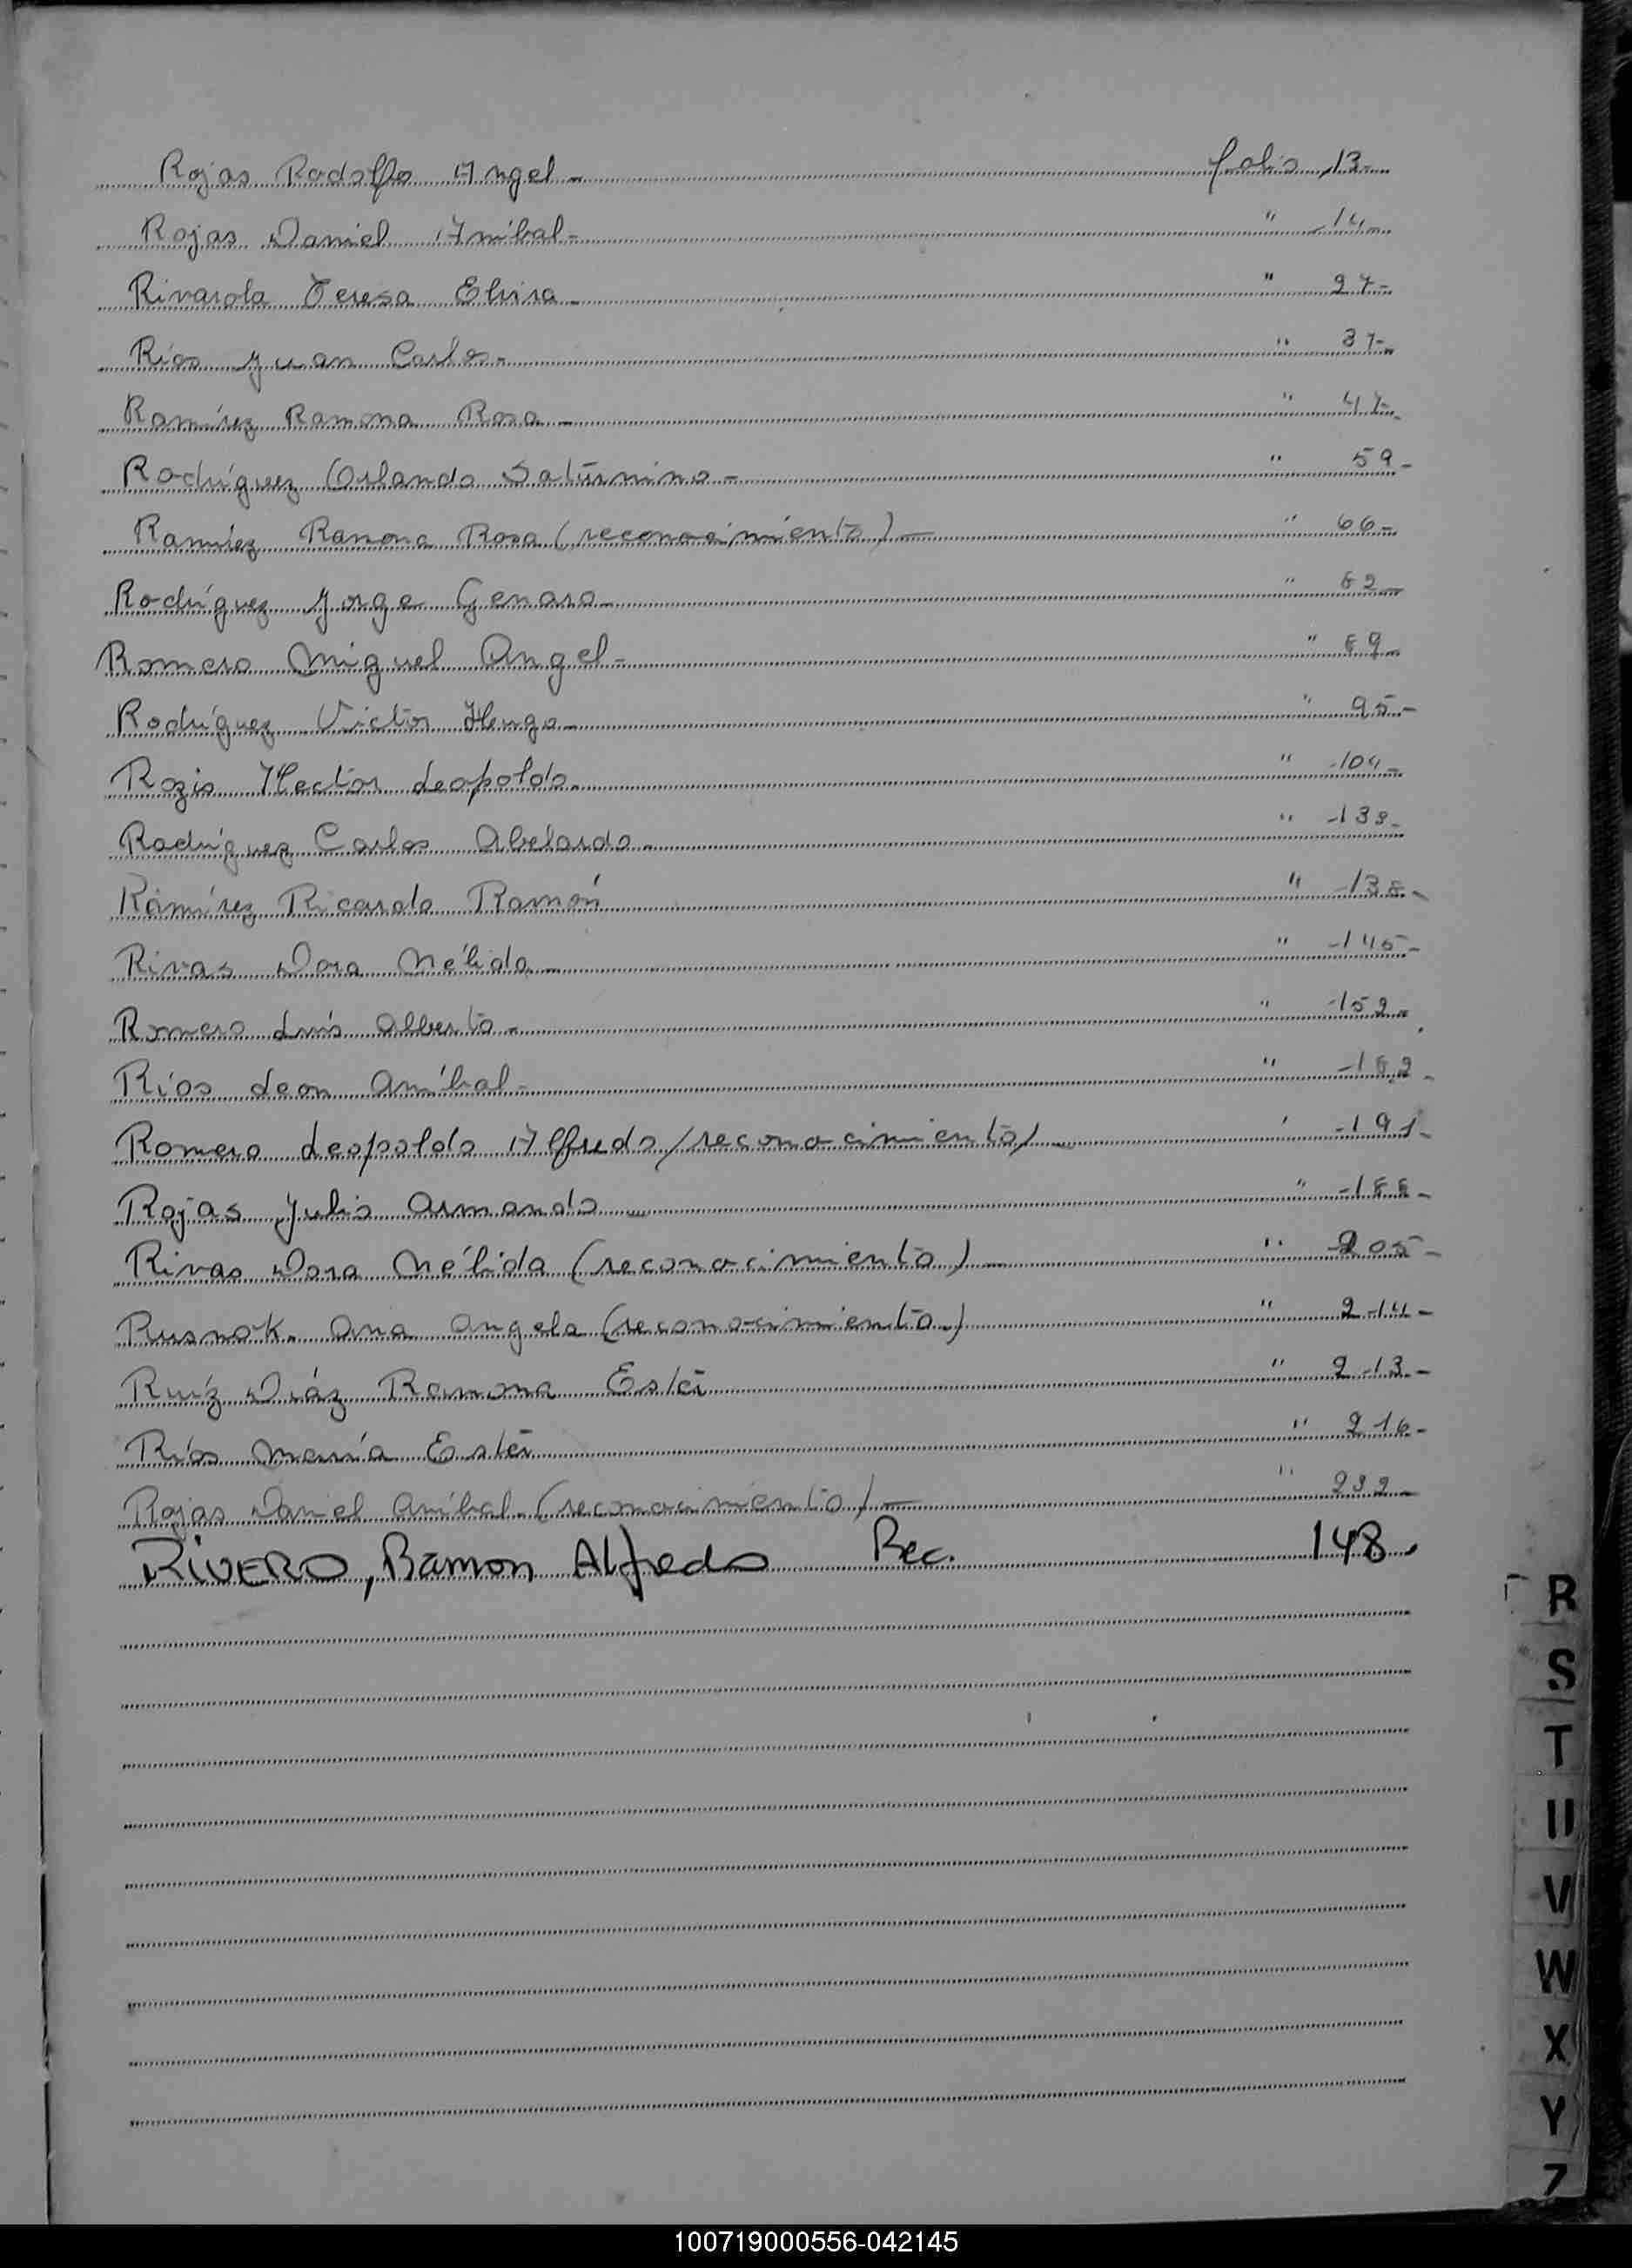 Rojas Rodolfo Angel - folio 13-
Rojas Daniel Anibal- " 14-
Rivarola Teresa Elvira - " 27-
Ríos Juan Carlos- " 37-
Ramírez Ramona Rosa - " 47-
Rodríguez Orlando Saturnino - " 59-
Ramírez Ramona Rosa (reconocimiento) - " 66-
Rodríguez Jorge Genaro - " 82-
Romero Miguel Angel- " 89-
Rodríguez Victor Hugo - " 95-
Hector Leopoldo - " 104-
Rodríguez Carlos Abelardo - " 133-
Ramírez Ricardo Ramón " 138-
Rivas Dora Nélida - " 145-
Romero Luis Alberto - " 152-
Ríos Leon Aníbal- " 182-
Romero Leopoldo Alfredo (reconocimiento) - " 191-
Rojas Julio Armando - " 188-
Rivas Dora Nélida (reconocimiento) - " 205-
Rusnak. Ana Angela (reconocimiento.) " 214-
Ruíz Díaz Ramona Ester " 213-
Ríos María Ester " 216-
Rojas Daniel Aníbal (reconocimiento) - " 232-
RIVERO, Ramon Alfredo Rec. 148.
R
S
T
U
V
W
X
Y
Z
100719000556-042145